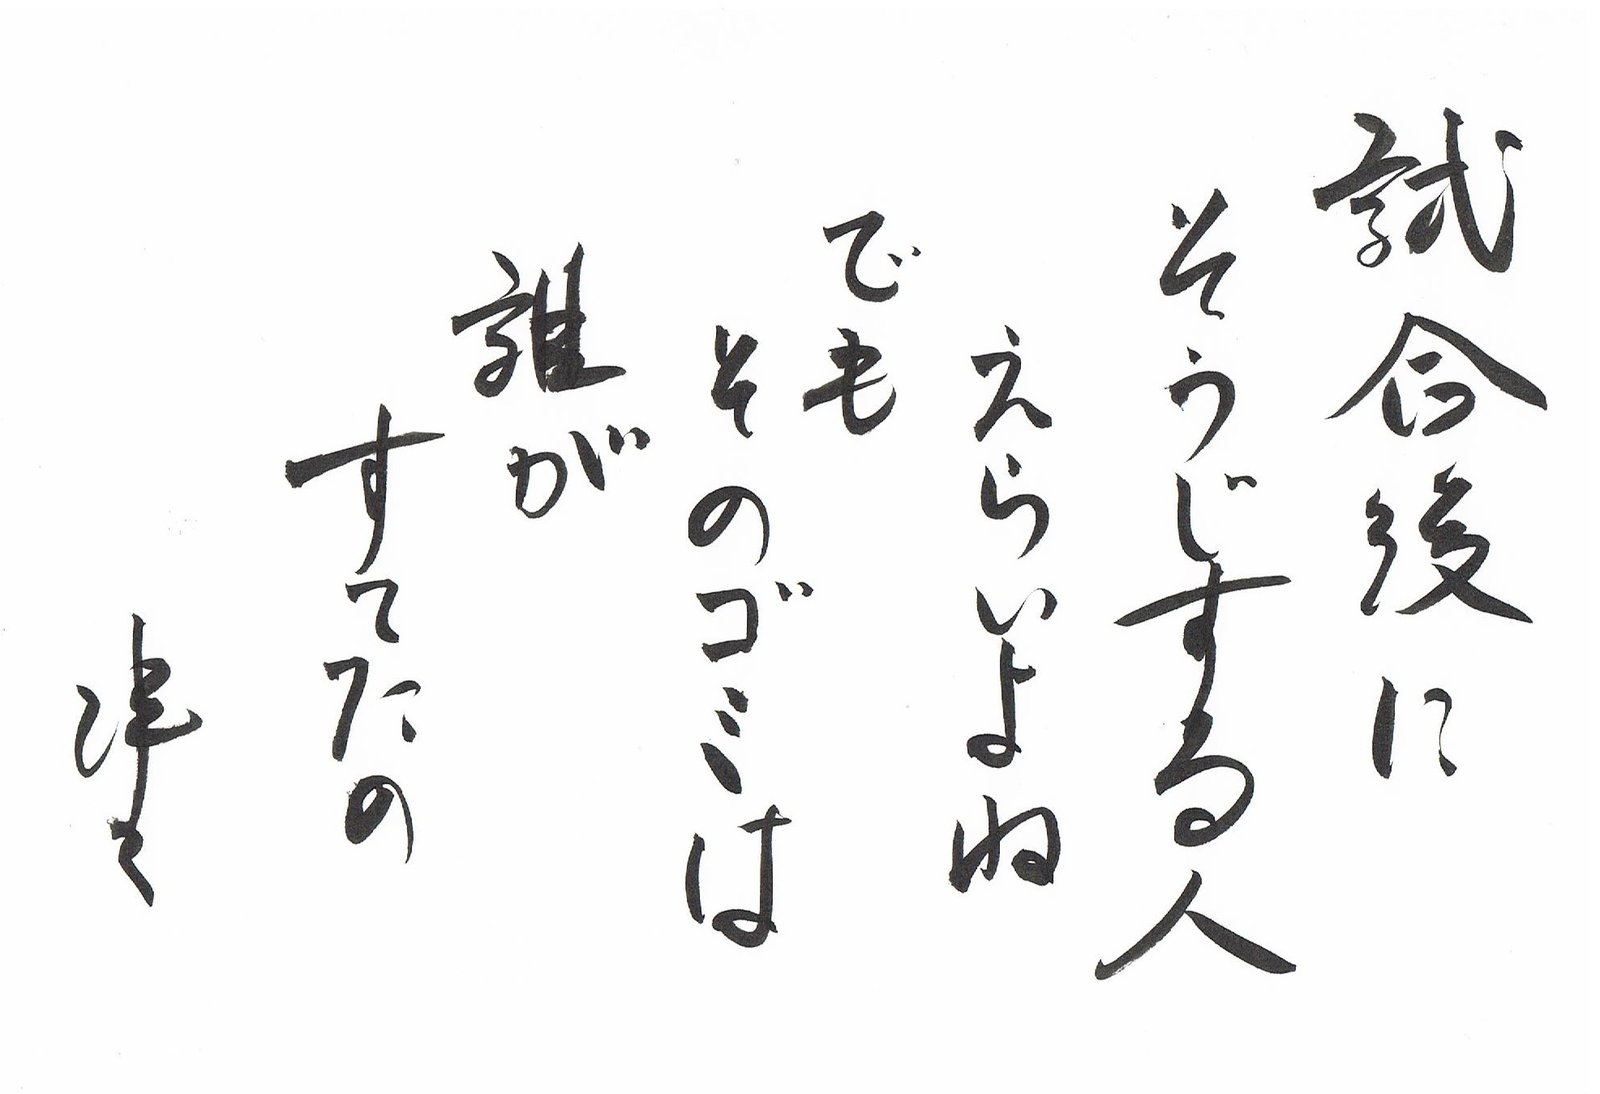 試合後に
そうじする人
えらいよね
でも
そのゴミは
誰が
すてたの